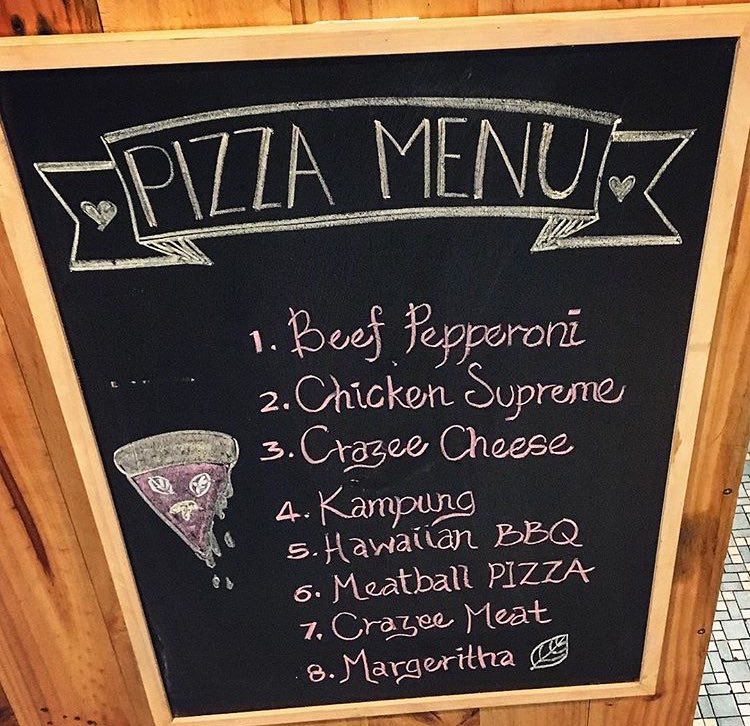 PIZZA MENU
1. Beef Pepperoni
2. Chicken Supreme
3. Crazee Cheese
4. Kampung
5. Hawaiian BBQ
6. Meatball PIZZA
7. Crazee Meat
8. Margeritha